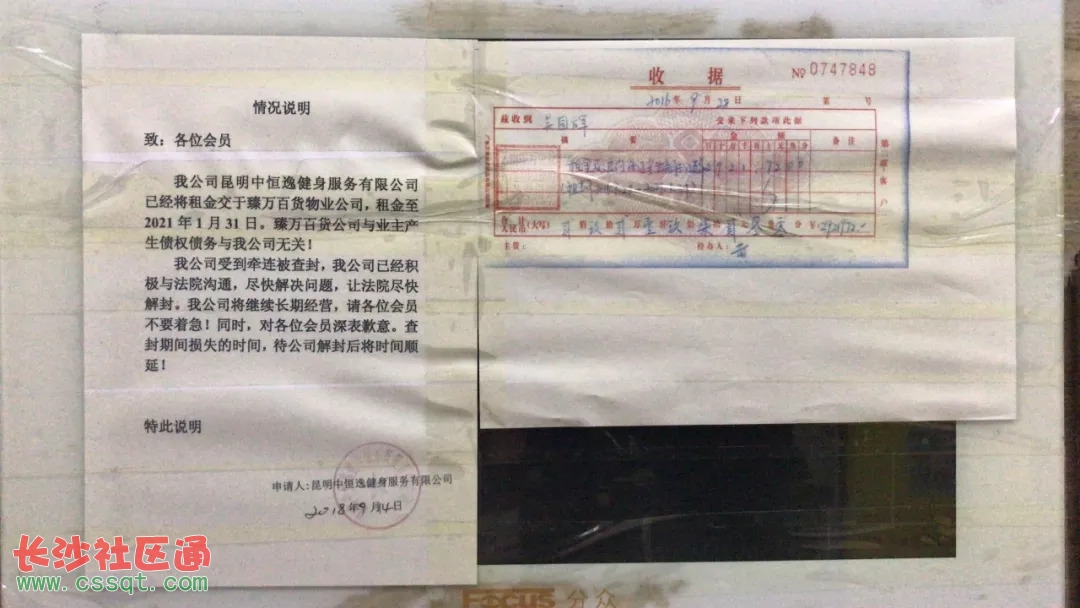 情况说明
致：各位会员
我公司昆明中恒逸健身服务有限公司
已经将租金交于臻万百货物业公司，租金至
2021年1月31日。臻万百货公司与业主产
生债权债务与我公司无关！
我公司受到牵连被查封，我公司已经积
极与法院沟通，尽快解决问题，让法院尽快
解封。我公司将继续长期经营，请各位会员
不要着急！同时，对各位会员深表歉意。查
封期间损失的时间，待公司解封后将时间顺
延！
特此说明
申请人：昆明中恒逸健身服务有限公司
2018年9月4日
收据
№ 0747848
2016年9月23日
第 号
兹收到
交来下列款项此据
摘要
金额
备注
合计
人民币(大写)
主管：
经办人：
长沙社区通
www.cssqt.com
FOCUS 分众